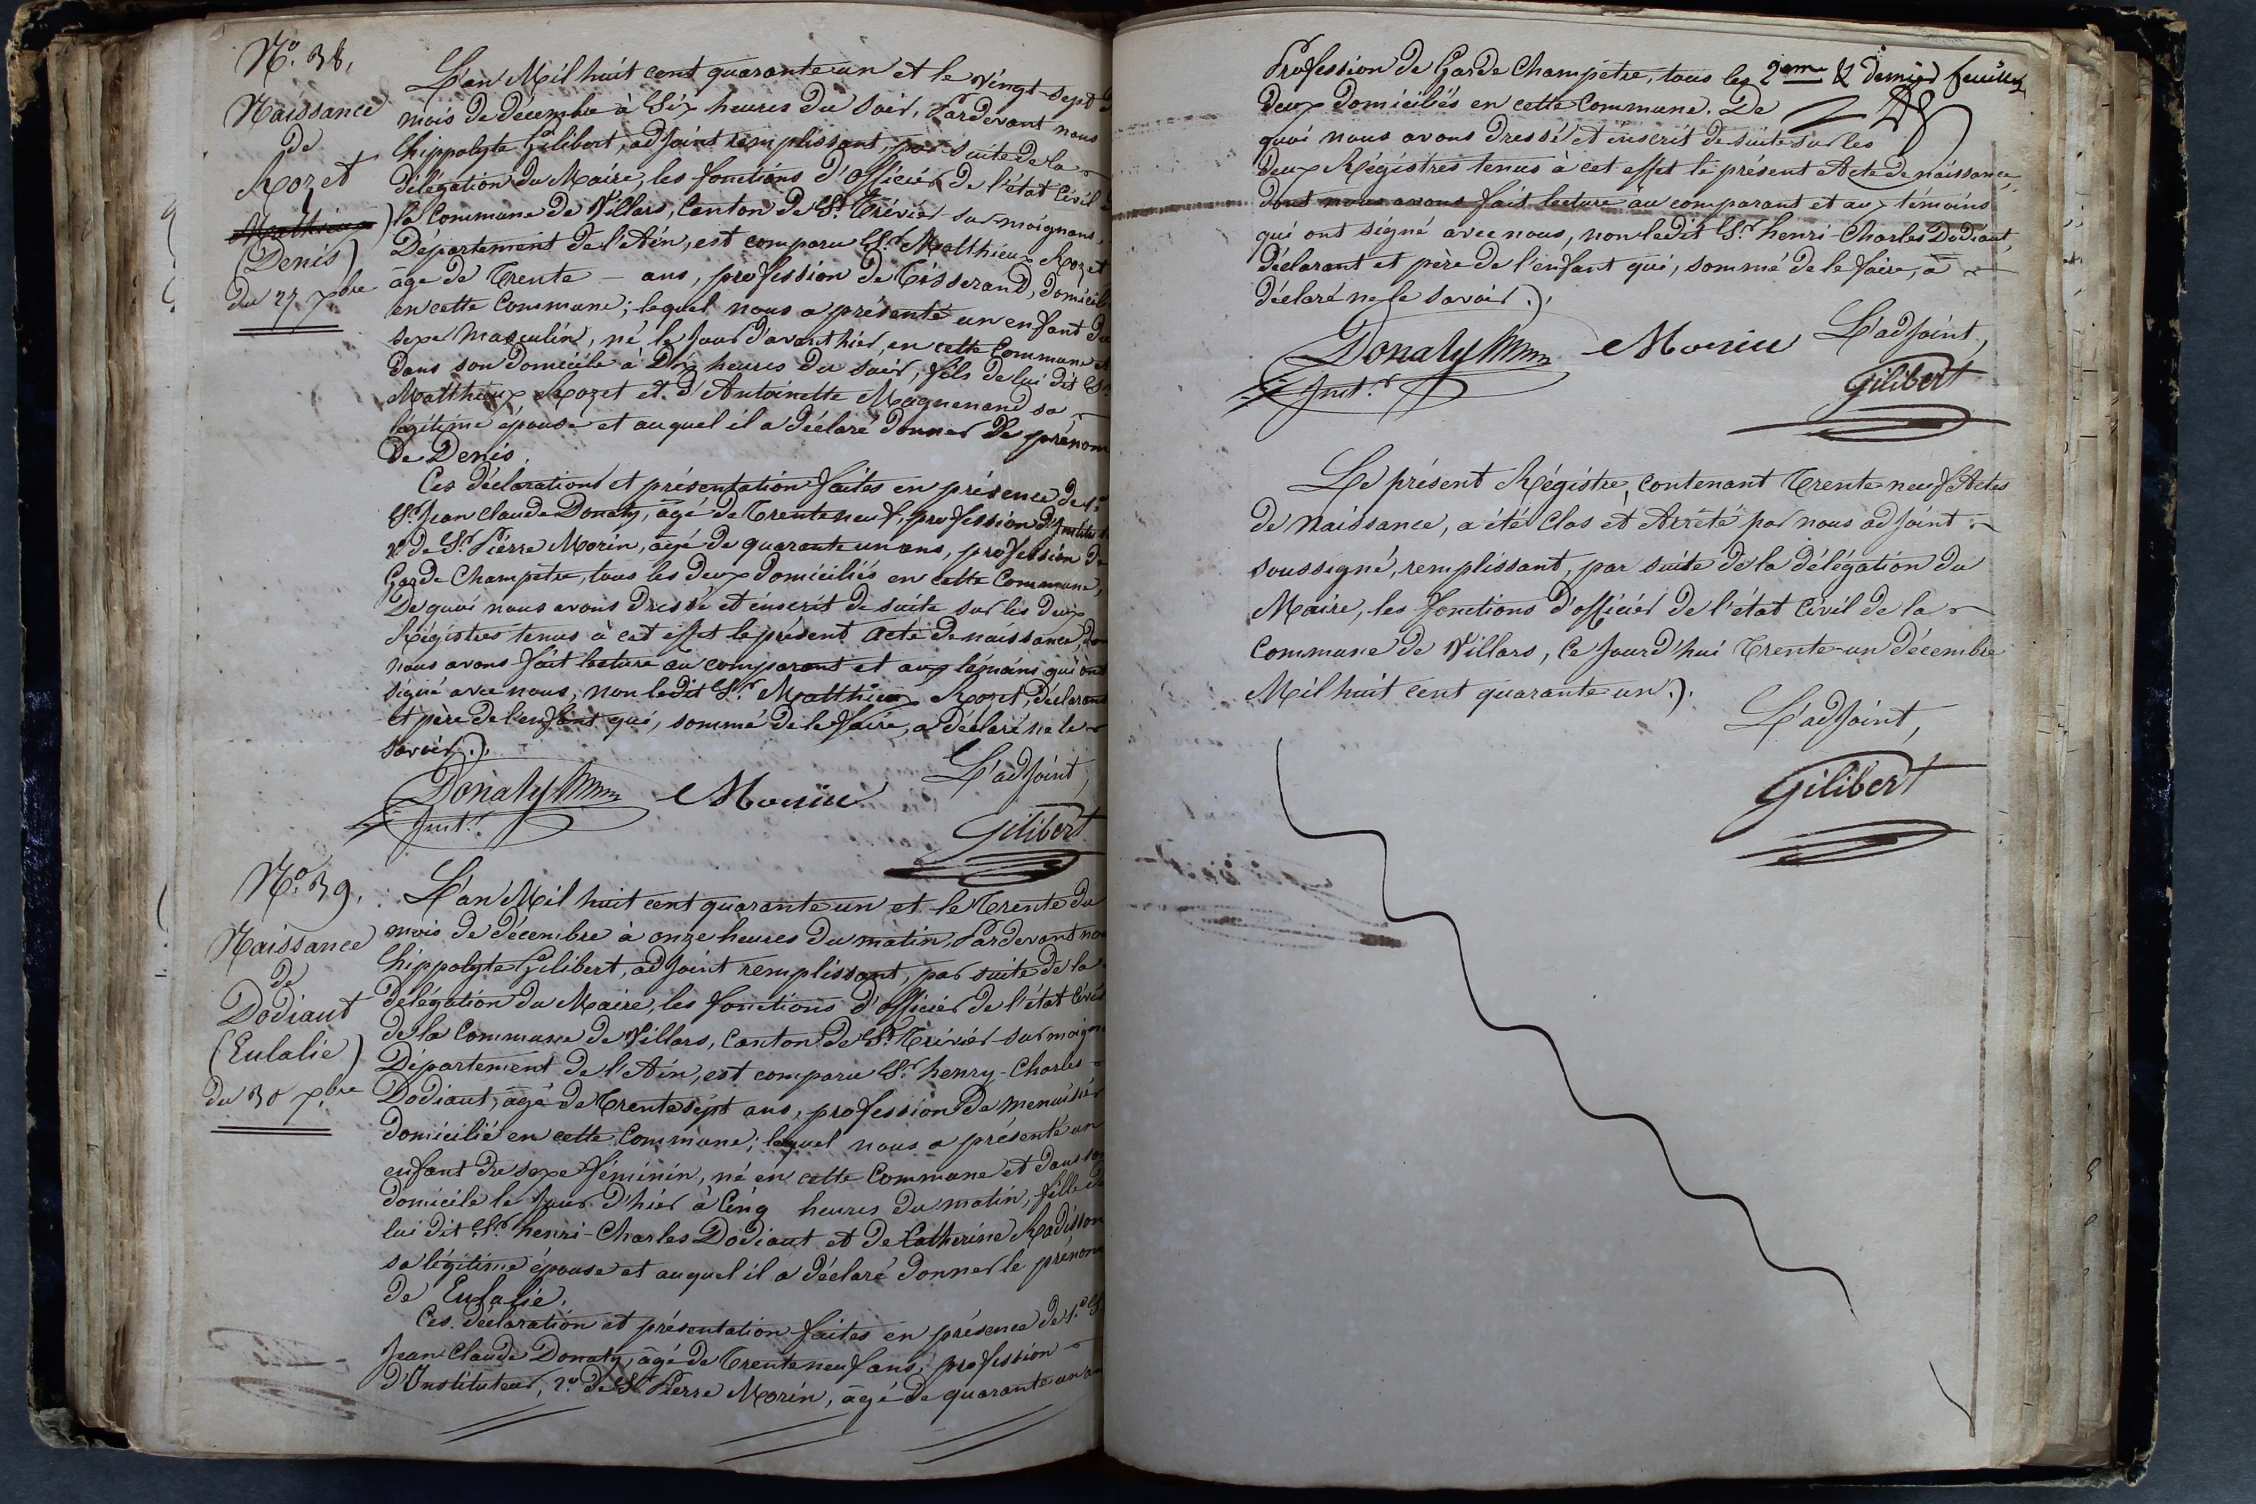 N.o 38,
Naissance
de
Rozet
Matthieux
(Denis)
du 27 Xbre
L'an Mil huit cent quarante un et le vingt-sept
mois de décembre à Six heures du Soir, Pardevant nous
hippolyte Gilibert, adjoint remplissant, par suite de la
délégation du Maire, les fonctions d'officier de l'état Civil
la Commune de Villars, Canton de St. Trévier-sur-moignans,
Département de l'Ain, est comparu Sr. Matthieux Rozet
âgé de Trente — ans, profession de Tisserand, domicilié
en cette Commune; lequel nous a présenté un enfant du
sexe Masculin, né le jour d'avant hier, en cette Commune et
dans son domicile à Dix heures du soir, fils de lui dit Sr.
Matthieux Rozet et d'Antoinette Magnenand sa
légitime épouse et auquel il a déclaré donner le prénom
de Denis.
Ces déclaration et présentation faites en présence de 1.o
Sr. Jean Claude Donaty, âgé de Trente neuf, profession d'Institut
2.o de Sr. Pierre Morin, âgé de quarante un ans, profession de
Garde Champêtre, tous les deux domiciliés en cette Commune,
De quoi nous avons dressé et inscrit de suite sur les deux
Régistres tenus à cet effet le présent acte de naissance, dont
nous avons fait lecture au comparant et aux témoins qui ont
signé avec nous, non ledit Sr. Matthieux Rozet, déclarant
et père de l'enfant qui, sommé de le faire, a déclaré ne le
savoir.).
L'adjoint,
Donaty Morin
Inst.r
Gilibert
N.o 39.
Naissance
de
Dodiaut
(Eulalie)
du 30 Xbre
L'an Mil huit cent quarante un et le Trente du
mois de décembre à onze heures du matin, Pardevant nous
hippolyte Gilibert, adjoint remplissant, par suite de la
délégation du Maire, les fonctions d'officier de l'état Civil
de la Commune de Villars, Canton de St. Trivier-sur moign
Département de l'Ain, est comparu Sr. henry-Charles
Dodiaut, âgé de Trente sept ans, profession de menuisier
domicilié en cette Commune; lequel nous a présenté un
enfant de sexe féminin, né en cette Commune et dans son
domicile le jour d'hier à Cinq heures du matin, fille de
lui dit Sr. henri-Charles Dodiaut et de Catherine Radisson
sa légitime épouse et auquel il a déclaré donner le prénom
de Eulalie.
Ces déclaration et présentation faites en présence de 1.o Sr.
Jean Claude Donaty, âgé de Trente neuf ans, profession
d'Instituteur, 2.o de Sr Pierre Morin, âgé de quarante un ans
2ème & dernier feuillet
Profession de Garde Champêtre, tous les
deux domiciliés en cette Commune. De
quoi nous avons dressé et inscrit de suite sur les
deux Régistres tenus à cet effet le présent Acte de naissance
dont nous avons fait lecture au comparant et aux témoins
qui ont signé avec nous, non ledit Sr. henri-Charles Dodiaut,
déclarant et père de l'enfant qui, sommé de le faire, a
déclaré ne le savoir.).
L'adjoint,
Donaty Morin
Inst.r
Gilibert
Le présent Régistre, contenant Trente neuf Actes
de naissance, a été Clos et Arrêté par nous adjoint
soussigné, remplissant, par suite de la délégation du
Maire, les fonctions d'officier de l'état Civil de la
Commune de Villars, Ce jourd'hui Trente-un décembre
Mil huit cent quarante un.).
L'adjoint,
Gilibert